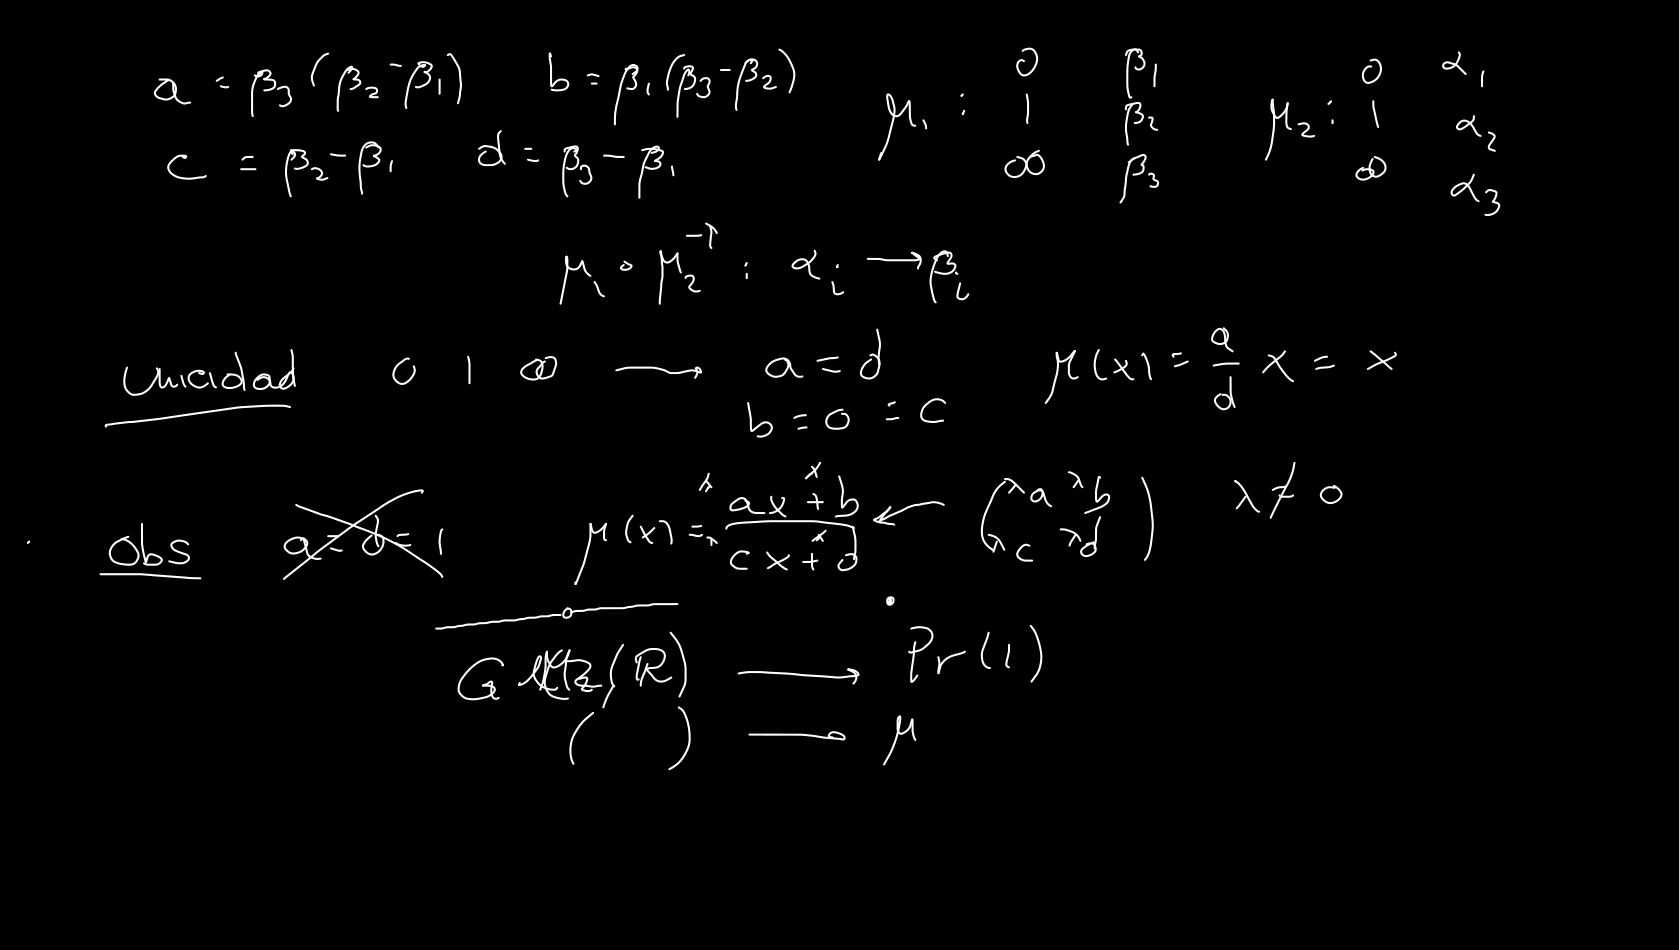 a = β₃(β₂-β₁) b = β₁(β₃-β₂)
c = β₂-β₁ d = β₃-β₁
μ₁ : 0 β₁
1 β₂
∞ β₃
μ₂ : 0 α₁
1 α₂
∞ α₃
μ₁ ∘ μ₂⁻¹ : αᵢ → βᵢ
Unicidad 0 1 ∞ → a = d
b = 0 = c
μ(x) = a/d x = x
Obs a = d = 1 μ(x) = (λax + λb)/(λcx + λd) ← (λa λb
λc λd) λ ≠ 0
G (R) → Pr(1)
( ) → μ